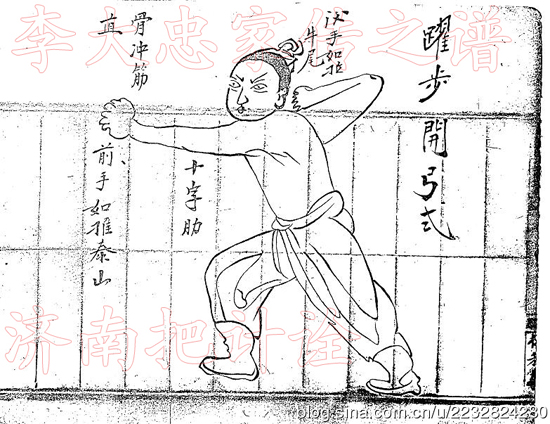 李大忠家传之谱
躍步開弓式
後手如拉
牛尾
骨冲筋
直
十字肋
前手如推泰山
济南把计诠
blog.sina.com.cn/u/2232824230